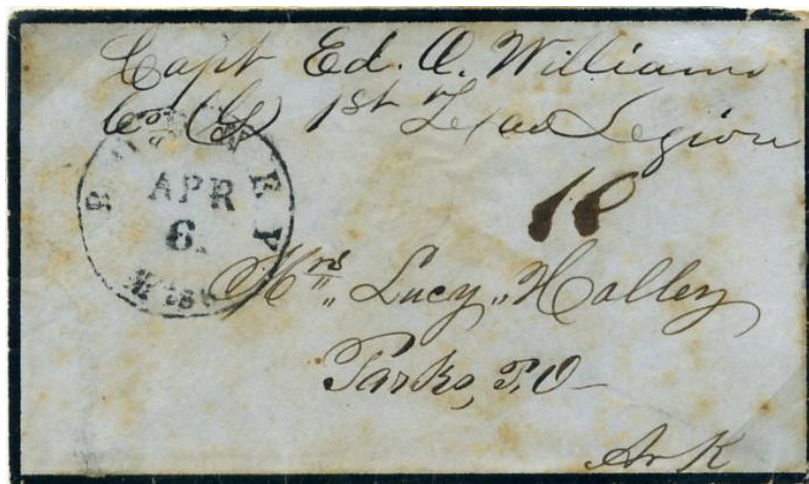 Capt Ed. O. Williams
Co (G) 1st Texas Legion
RODNEY
APR
6.
Miss
10
Mrs Lucy Holley
Parks, P.O
Ark